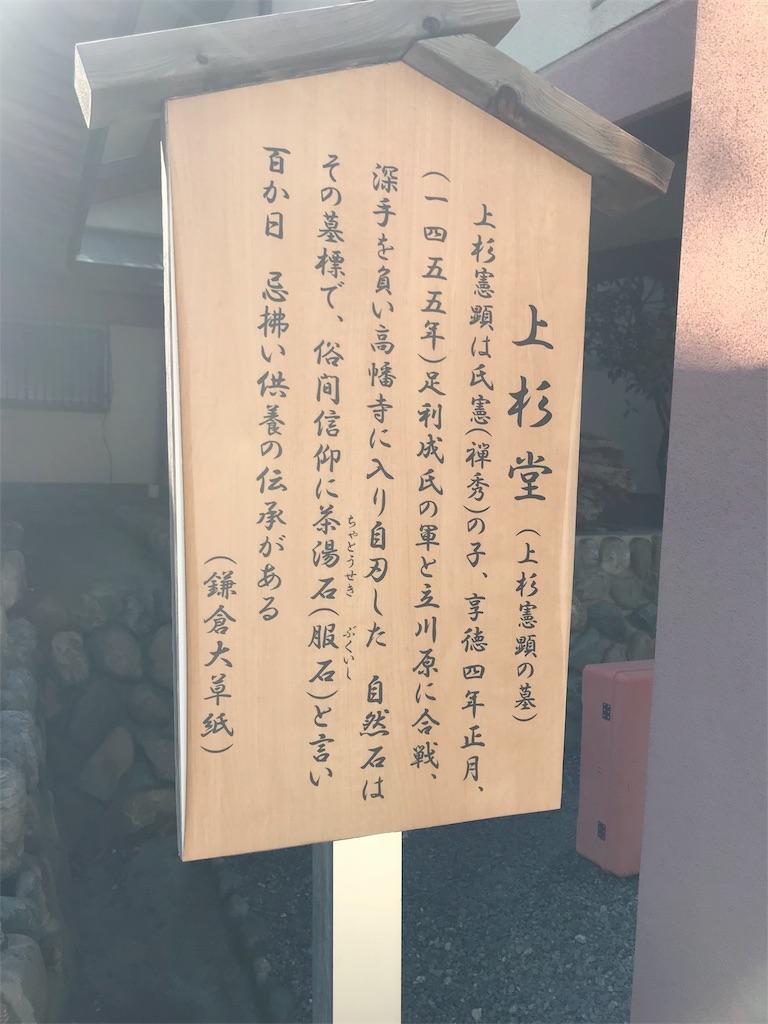 上杉堂(上杉憲顕の墓)
上杉憲顕は氏憲(禅秀)の子、享徳四年正月、
(一四五五年)足利成氏の軍と立川原に合戦、
深手を負い高幡寺に入り自刃した 自然石は
その墓標で、俗間信仰に茶湯石(服石)と言い
ちゃとうせき ぶくいし
百か日 忌拂い供養の伝承がある
(鎌倉大草紙)